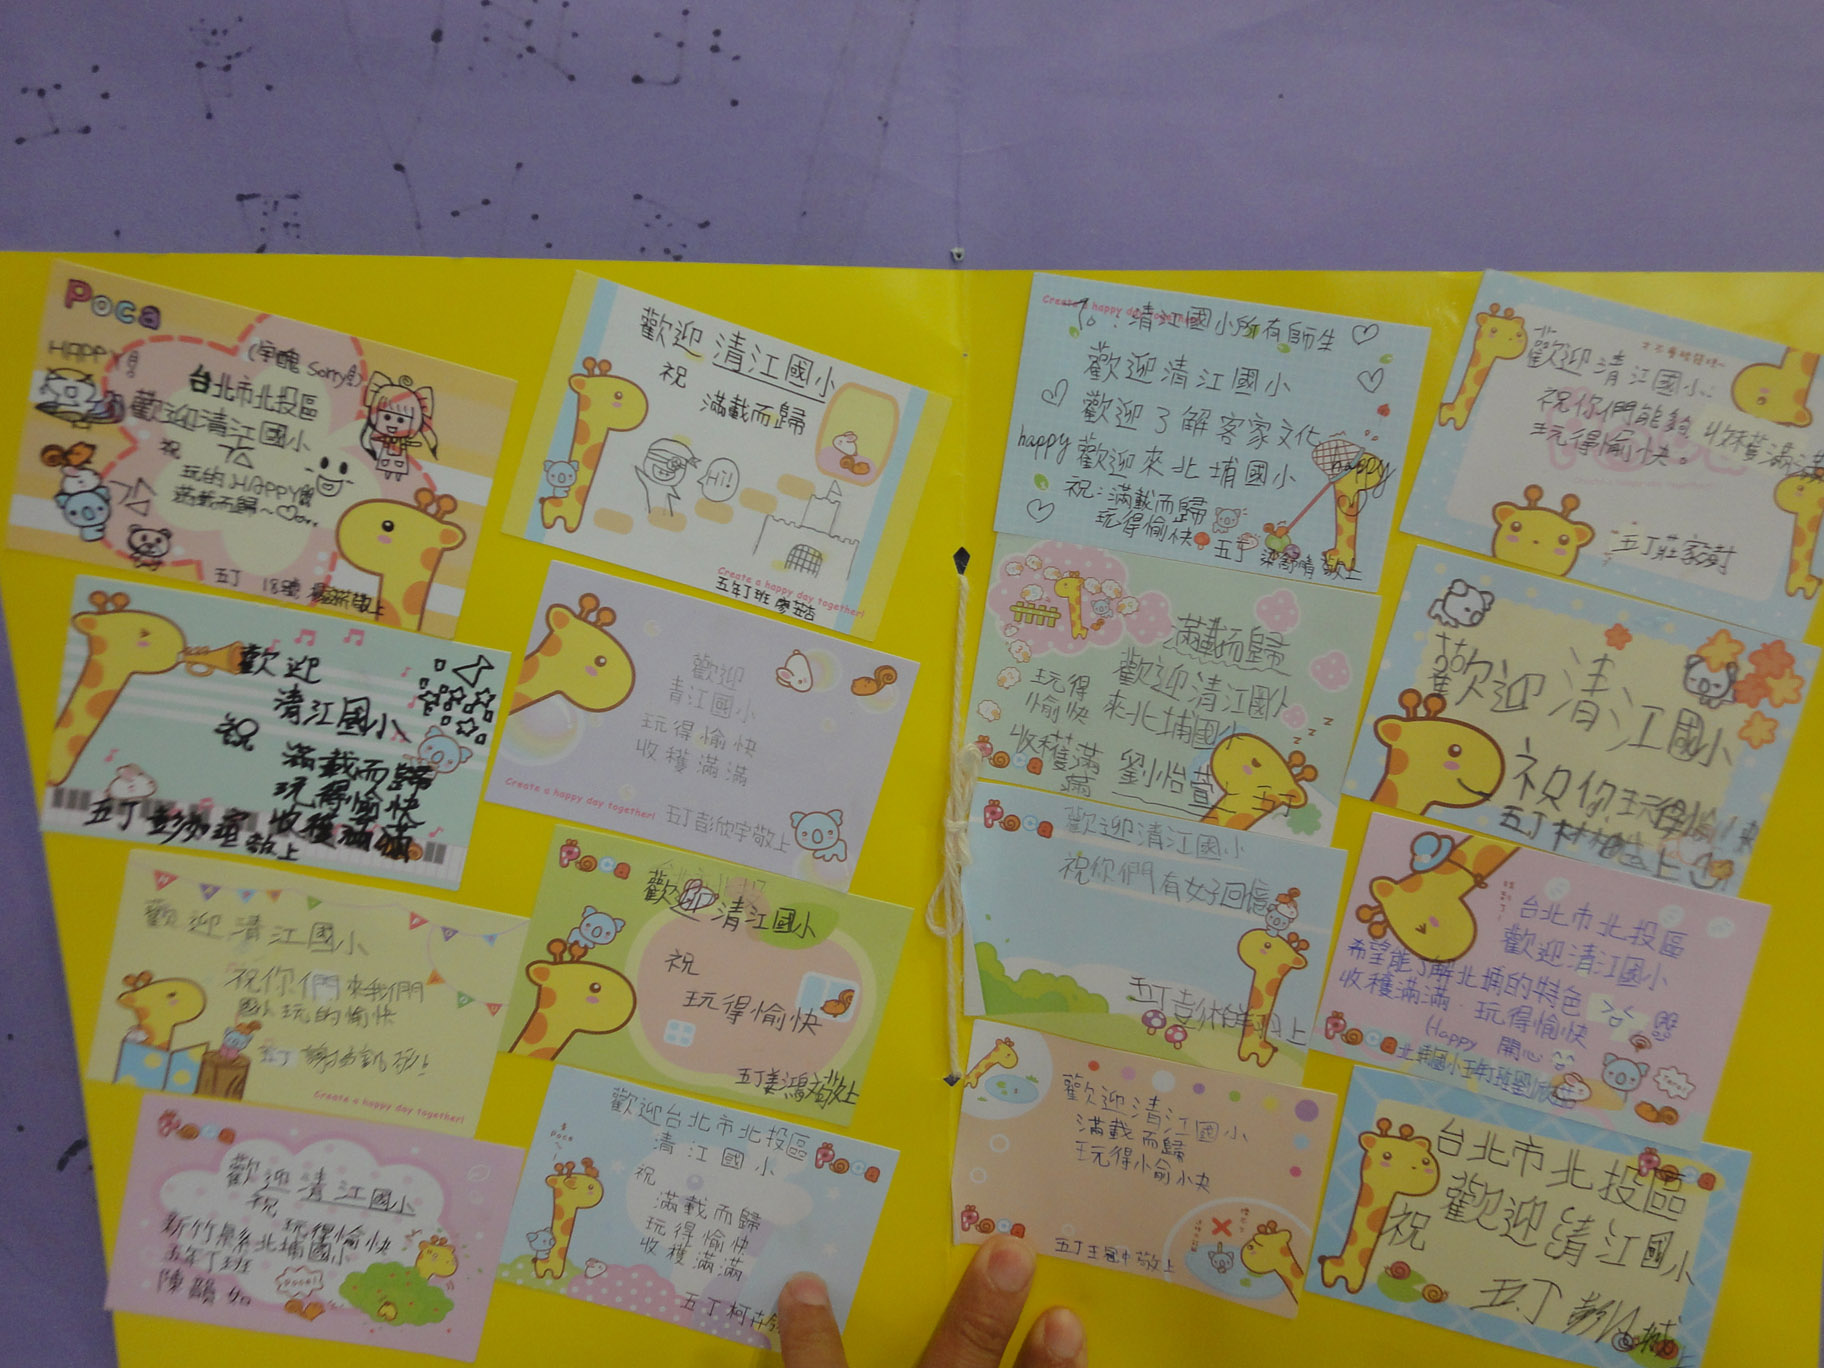 Poca
HAPPY!
(字醜 Sorry
台北市北投區
歡迎清江國小
祝
玩的HAPPY
滿載而歸~
五丁 18號
歡迎清江國小
祝
滿載而歸
Hi!
Create a happy day together!
五年丁班
歡迎
清江國小
祝
滿載而歸
玩得愉快
收穫滿滿
五丁
敬上
歡迎
青江國小
玩得愉快
收穫滿滿
Create a happy day together!
五丁彭欣宇敬上
歡迎清江國小
祝你們來我們
國小玩的愉快
五丁
Create a happy day together!
Poca
歡迎清江國小
祝
玩得愉快
五丁姜鴻文敬上
Poca
歡迎清江國小
祝 玩得愉快
新竹縣北埔國小
五年丁班
陳韻如
歡迎台北市北投區
清江國小
Poca
祝
滿載而歸
玩得愉快
收穫滿滿
五丁柯卉
Create a happy day together!
To:清江國小所有師生
歡迎清江國小
歡迎了解客家文化
happy 歡迎來北埔國小 happy
祝:滿載而歸
玩得愉快
五丁 梁舒晴 敬上
歡迎清江國小
祝你們能夠收穫滿滿
玩得愉快。
五丁莊家
滿載而歸
歡迎清江國小
來北埔國小
玩得
愉快
收穫滿
滿
Poca
劉怡萱
五丁
歡迎清江國小
祝你玩得愉快
五丁
上
Poca
歡迎清江國小
祝你們有好回憶
五丁彭
上
台北市北投區
歡迎清江國小
希望能了解北埔的特色
收穫滿滿.玩得愉快
Happy 開心
Poca
北埔國小五年丁班劉欣
歡迎清江國小
滿載而歸
玩得愉快
Poca
五丁王
中敬上
台北市北投區
Poca
歡迎清江國小
祝
五丁 彭
上